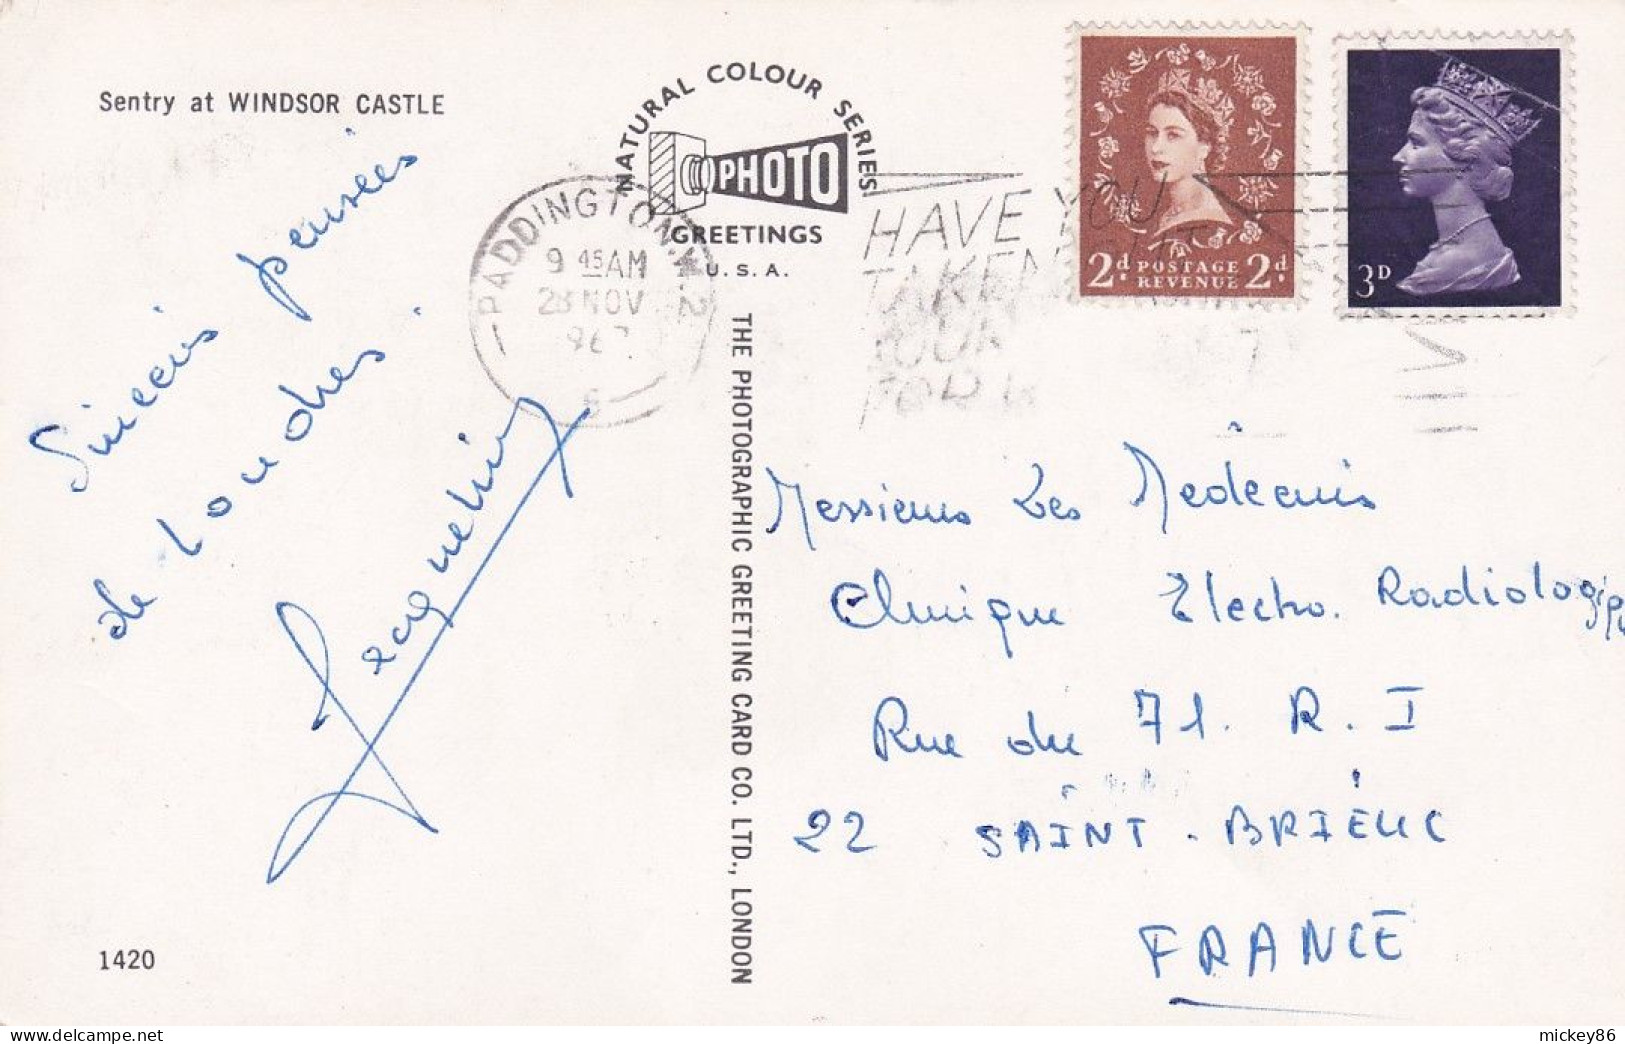 Sentry at WINDSOR CASTLE
Sincères pensées
de Londres.
NATURAL COLOUR SERIES
PHOTO
GREETINGS
U.S.A.
PADDINGTON.W.2
9 45 AM
28 NOV
HAVE YOU
TAKEN
YOUR
2d. POSTAGE 2d.
REVENUE
3D
THE PHOTOGRAPHIC GREETING CARD CO. LTD., LONDON
Messieurs Les Medecins
Clinique Electro. Radiologiq
Rue du 71. R. I
22 SAINT-BRIEUC
FRANCE
1420
mickey86